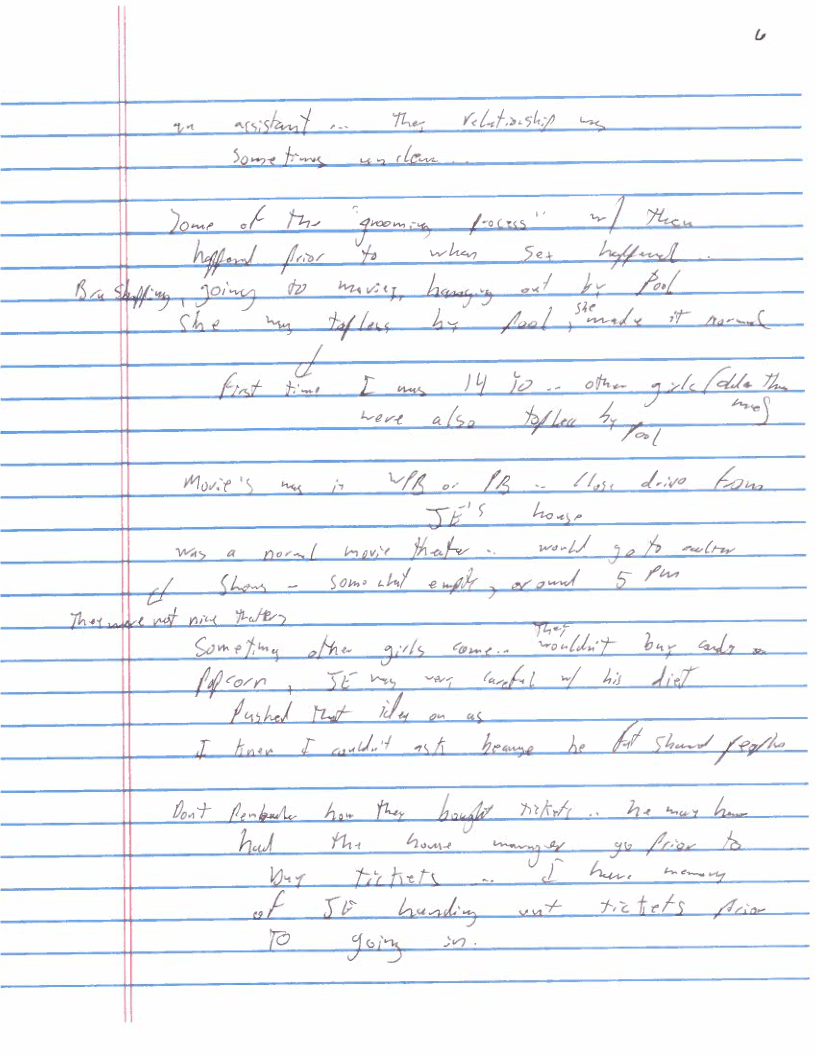 6
an assistant ... They relationship was
Sometimes unclear ...
Some of the "grooming process" w/ them
happend prior to when Sex happend ..
Bra Shopping, going to movies, hanging out by Pool
She was topless by pool, she made it normal
first time I was 14 yo .. other girls (older than me)
were also topless by pool
Movie's was in WPB or PB .. Close drive from
JE's house
was a normal movie theater .. would go to earlier
Shows - somewhat empty, around 5 pm
They were not nice theaters
Sometimes other girls come .. They wouldn't buy candy or
Popcorn, JE was very careful w/ his diet
Pushed that idea on us
I knew I couldn't ask because he fat shamed people
Don't Remember how they bought tickets .. he may have
had the house manager go prior to
buy tickets .. I have memory
of JE handing out tickets prior
TO going in.